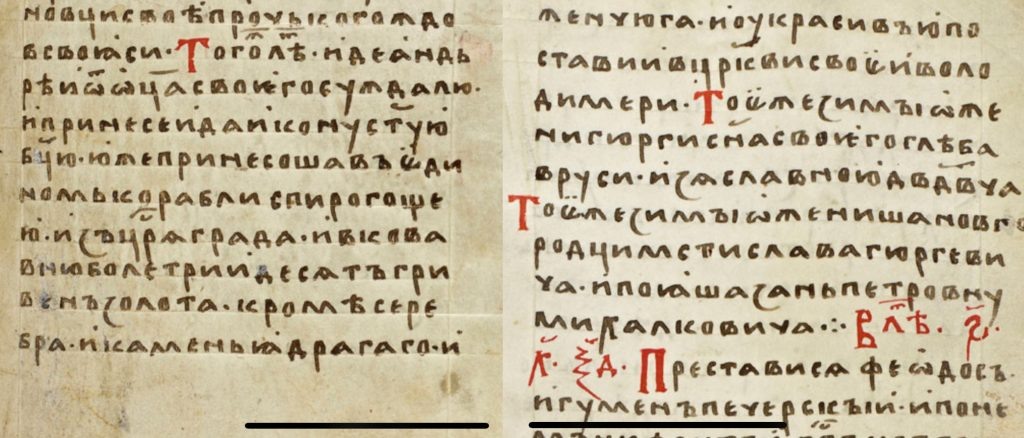 новци своѣ проч· когождо
всвоꙗси· Того лѣт· иде андь
рѣи ѿ ѡца своѥго суждалю·
ипринесе ида икону стую
бцю·юже принесоша въ ѥди
номь корабли спирогоще
ю·изъ црѧграда·ивкова
вню боле трии десѧтъ гри
венъ золота·кромѣ сере
бра·икаменьꙗ драгаго·и
женчюга·иоукрасивъ ю по
стави ивцркви своѥи воло
димери· Тоѥже зимы ѡже
ни гюрги сна своѥго глѣба
вруси·изѧславною двдвча
Тоѥже зимы ѡжениша новго
родци мстислава гюргеви
ча·ипоꙗша зань петровну
михалковича·:· В лѣт· ҂ѕ·
х· ѯ д· Престависѧ феѡдосъ·
игуменъ печерьскыи·ипоне